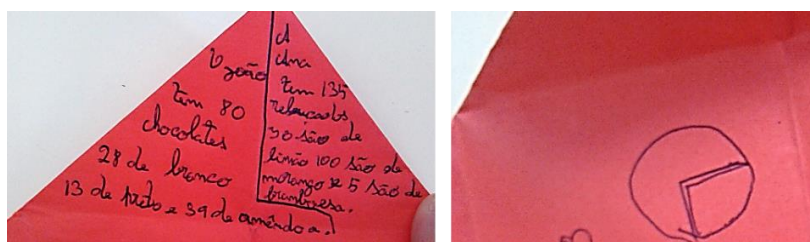 O João
tem 80
chocolates
28 de branco
13 de preto e 39 de amêndoa.
A
Ana
tem 135
rebuçados
30 são de
limão 100 são de
morango e 5 são de
framboesa.